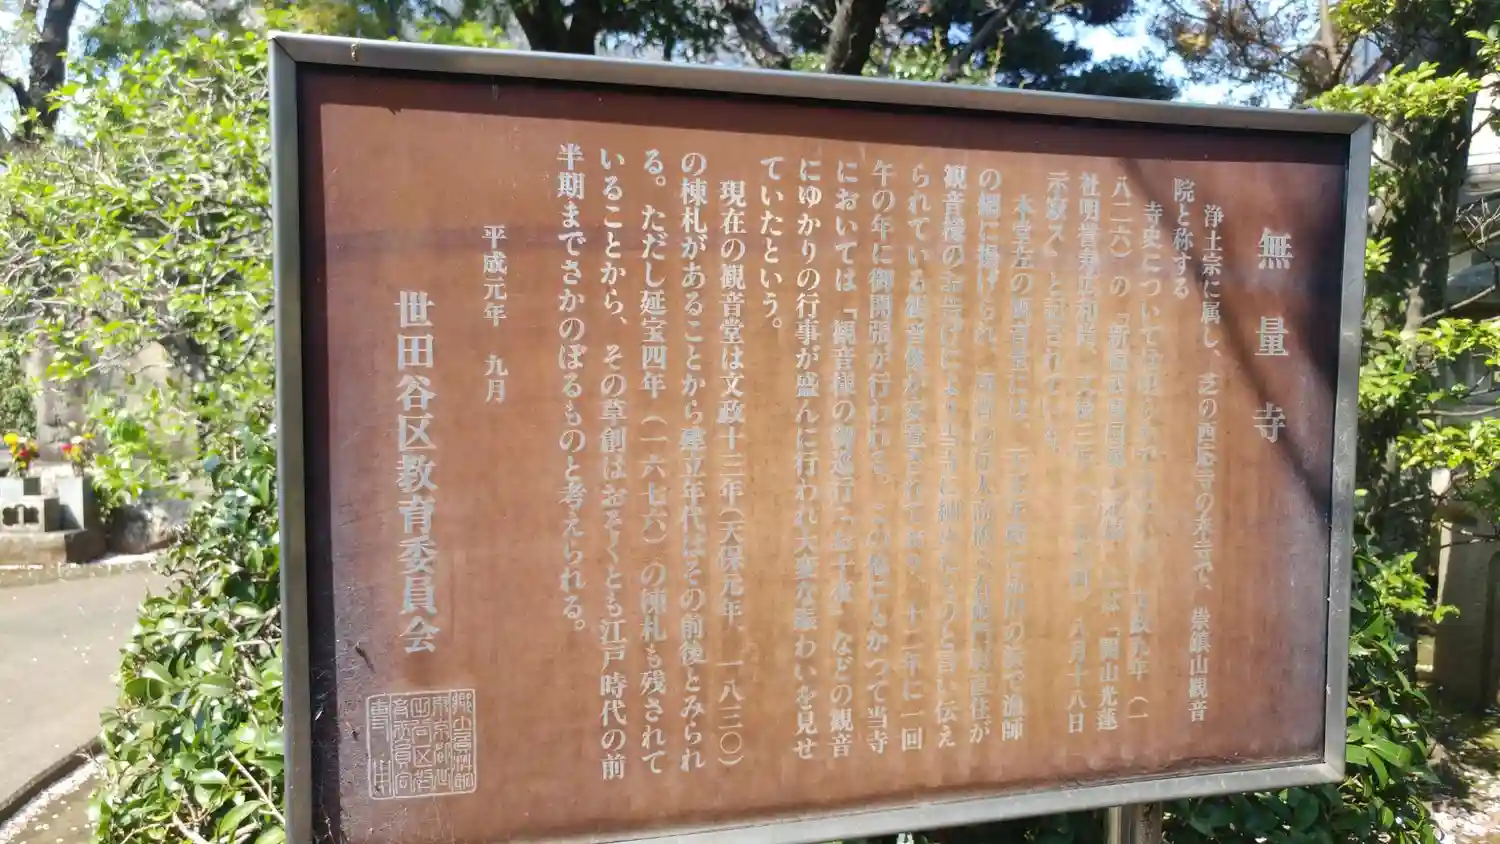 無量寺
浄土宗に属し、芝の西応寺の末寺で、崇鎮山観音
院と称する
寺史については 文政九年（一
八二六）の『新編武蔵風土記稿』には「開山光蓮
社明誉 和尚、 八月十八日
示寂ス」と記されている。
本堂左の観音堂には、 品川の浜で漁師
の網に揚げられ、 が
観音様のお告げにより当寺に納めたものと言い伝え
られている観音像が安置されており、十二年に一回
午の年に御開張が行われる。この他にもかつて当寺
においては「観音様の御巡行・お十夜」などの観音
にゆかりの行事が盛んに行われ大変な賑わいを見せ
ていたという。
現在の観音堂は文政十三年（天保元年、一八三〇）
の棟札があることから建立年代はその前後とみられ
る。ただし延宝四年（一六七六）の棟札も残されて
いることから、その草創はおそくとも江戸時代の前
半期までさかのぼるものと考えられる。
平成元年 九月
世田谷区教育委員会